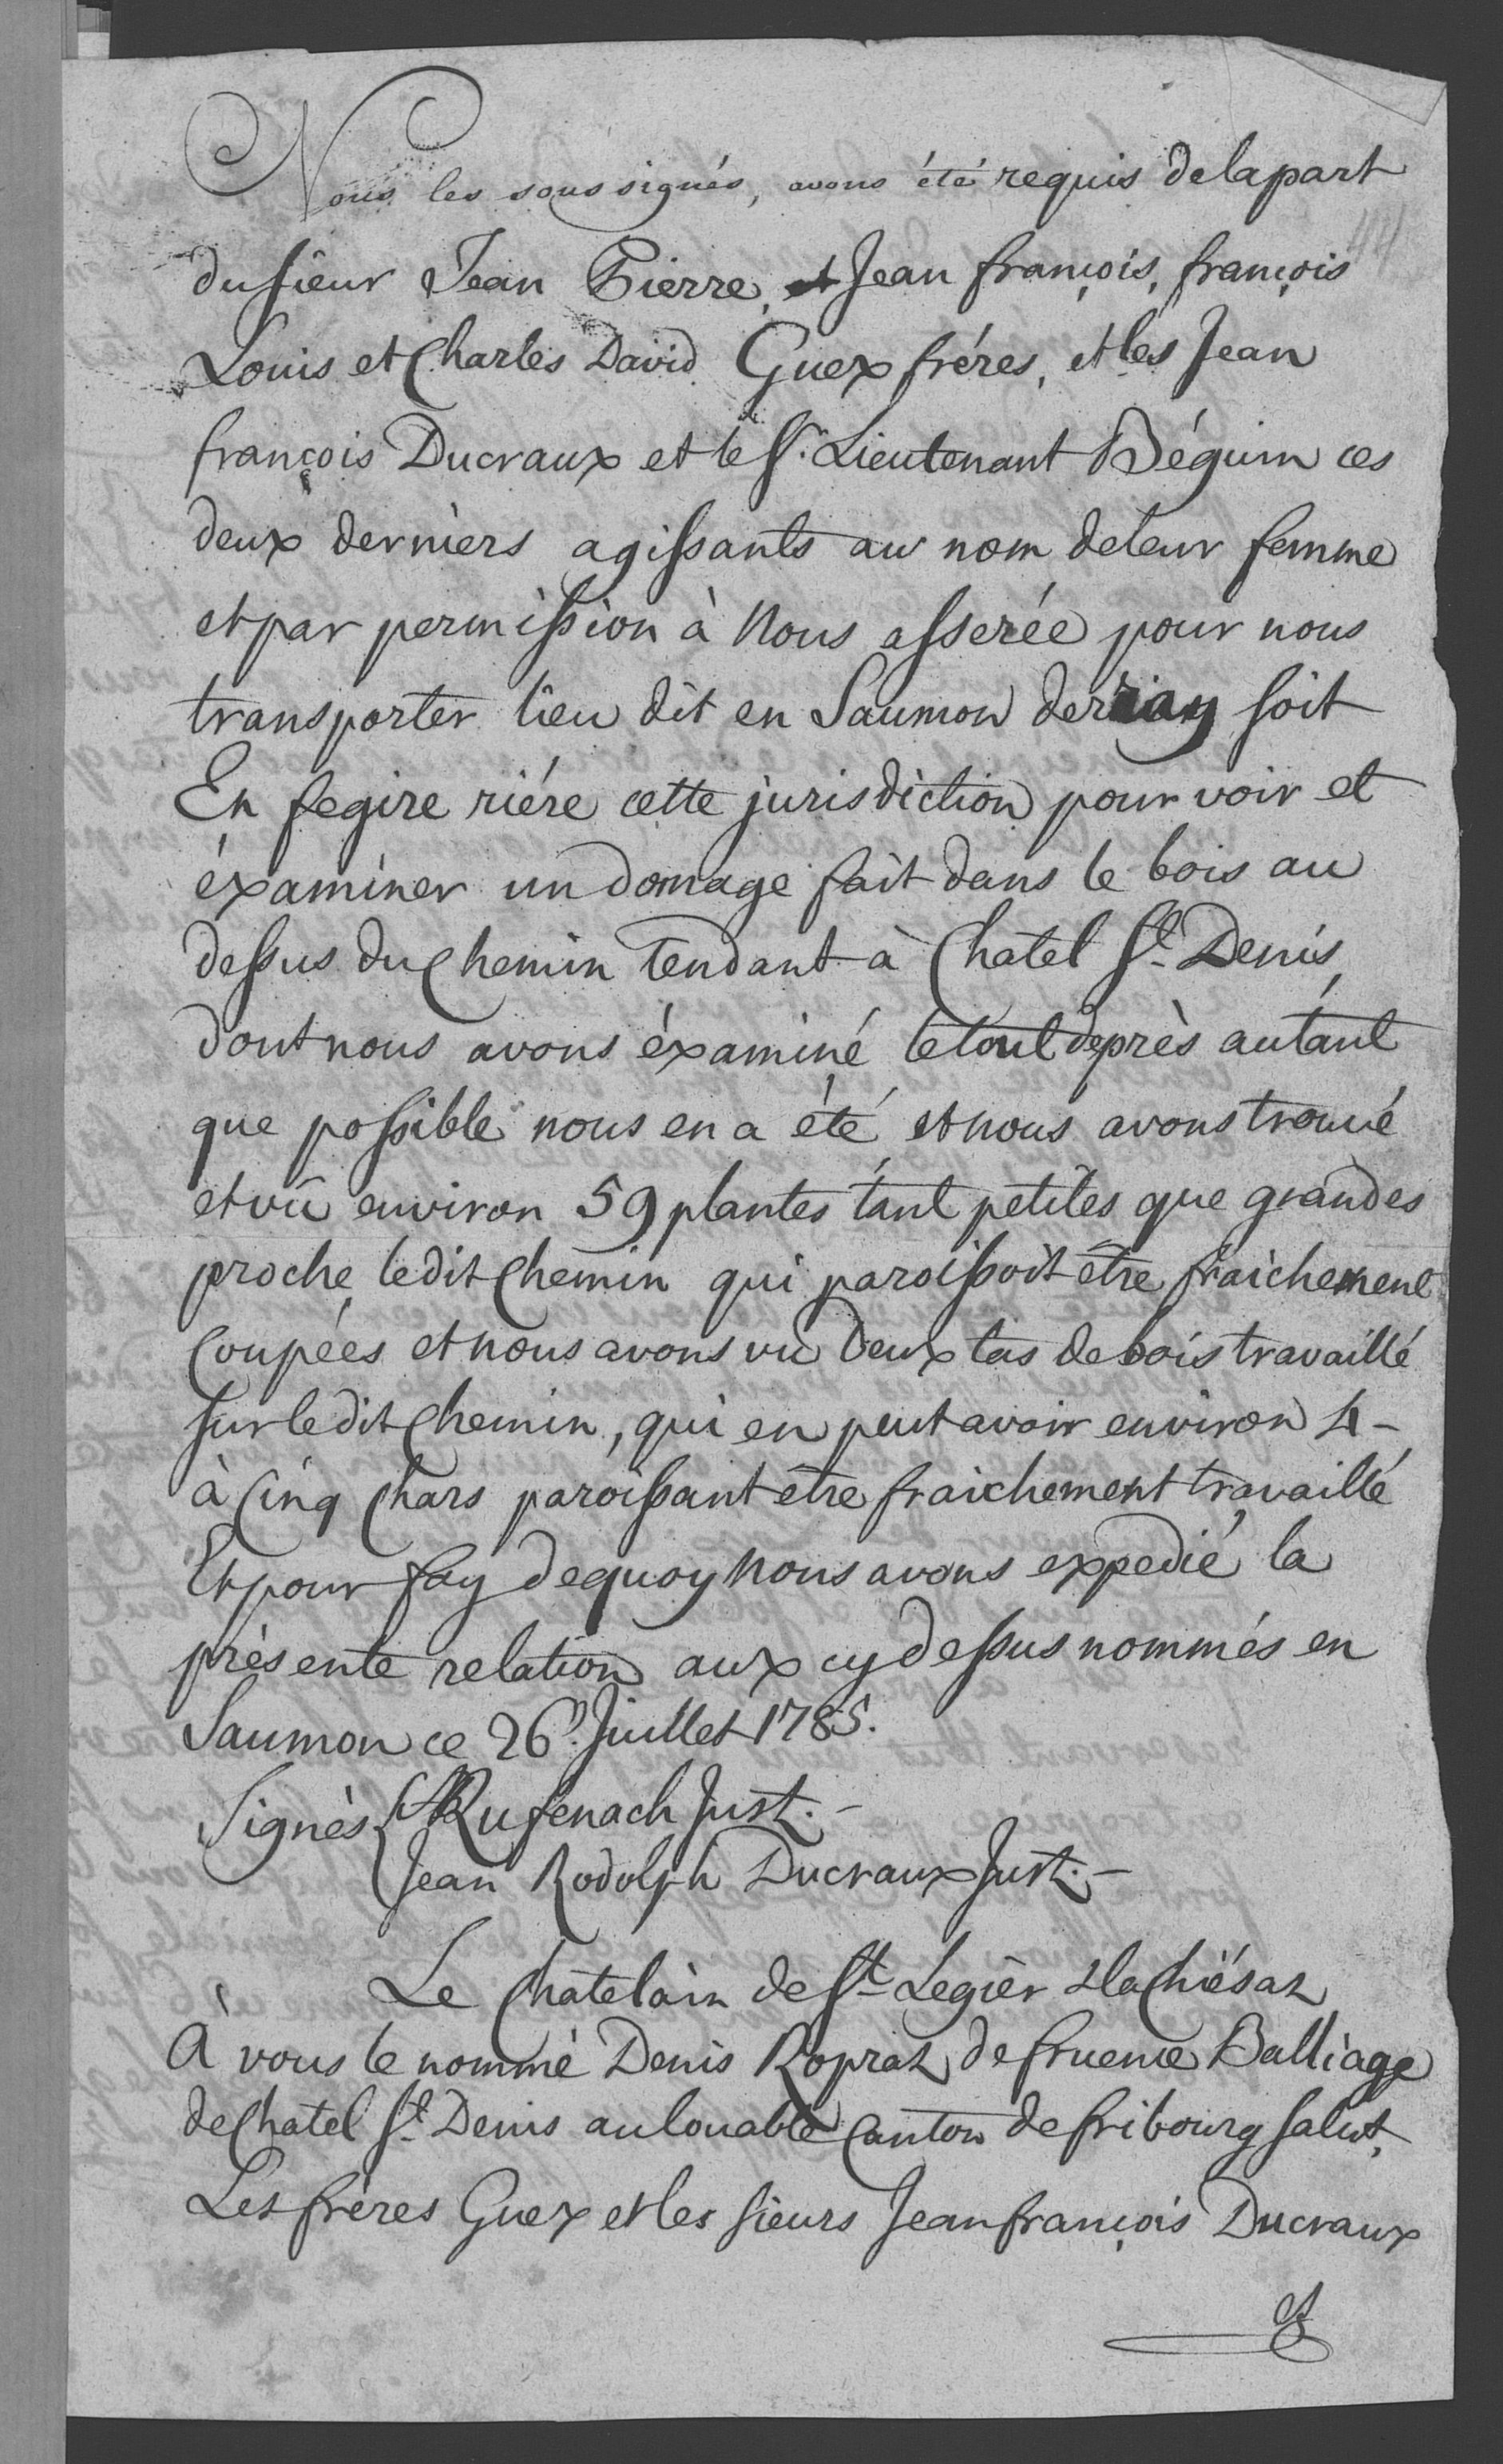 Nous les soussignés, avons été requis de la part
du sieur Jean Pierre, et Jean françois, françois
Louis et Charles David Guex fréres, et les Jean
françois Ducraux et le Sr. Lieutenant Béguin ces
deux derniers agissants au nom de leur femme
et par permission à Nous asserée pour nous
transporter lieu dit en Saumon derray soit
En fegire riére cette jurisdiction pour voir et
éxaminer un domage fait dans le bois au
dessus du Chemin Tendant à Chatel St. Denis,
dont nous avons éxaminé le tout deprès autant
que possible nous en a été, et nous avons trouvé
et vû environ 59 plantes tant petites que grandes
proche le dit Chemin qui paroissoit être fraichement
Coupées et nous avons vû deux tas de bois travaillé
sur le dit Chemin, qui en peut avoir environ 4 -
à Cinq Chars paroissant être fraichement travaillé
Et pour foy de quoy Nous avons expedié la
présente relation aux cy dessus nommés en
Saumon ce 26e. Juillet 1785.
Signés Rufenach Just. -
Jean Rodolph Ducraux Just. -
Le Chatelain de St. Legier & la Chiésaz
À vous le nommé Denis Ropraz de fruence Balliage
de Chatel St. Denis au louable Canton de fribourg salut,
Les fréres Guex et les sieurs Jean françois Ducraux
et